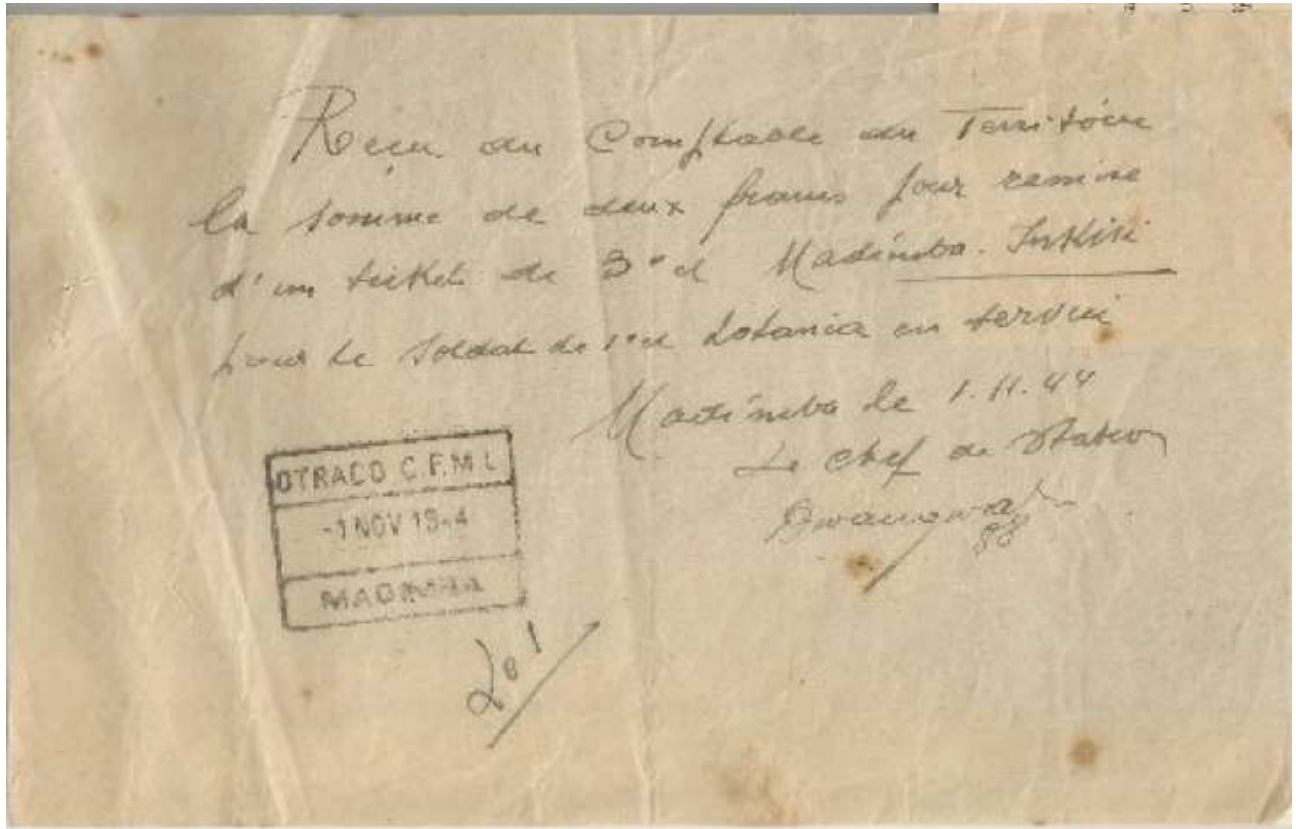 Reçu du Comptable du Territoire
la somme de deux francs pour remise
d'un ticket de 3e cl Madimba. Inkisi
pour le soldat de 1e cl Lotanica en service
Madimba le 1.11.44
Le chef de Station
OTRACO C.F.M.L
-1 NOV 19-4
MADIMBA
201